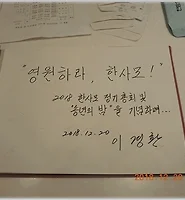 "영원하라, 한사모!"
2018 한사모 정기총회 및
"송년의 밤"을 기념하며...
2018.12.20
이 경 환